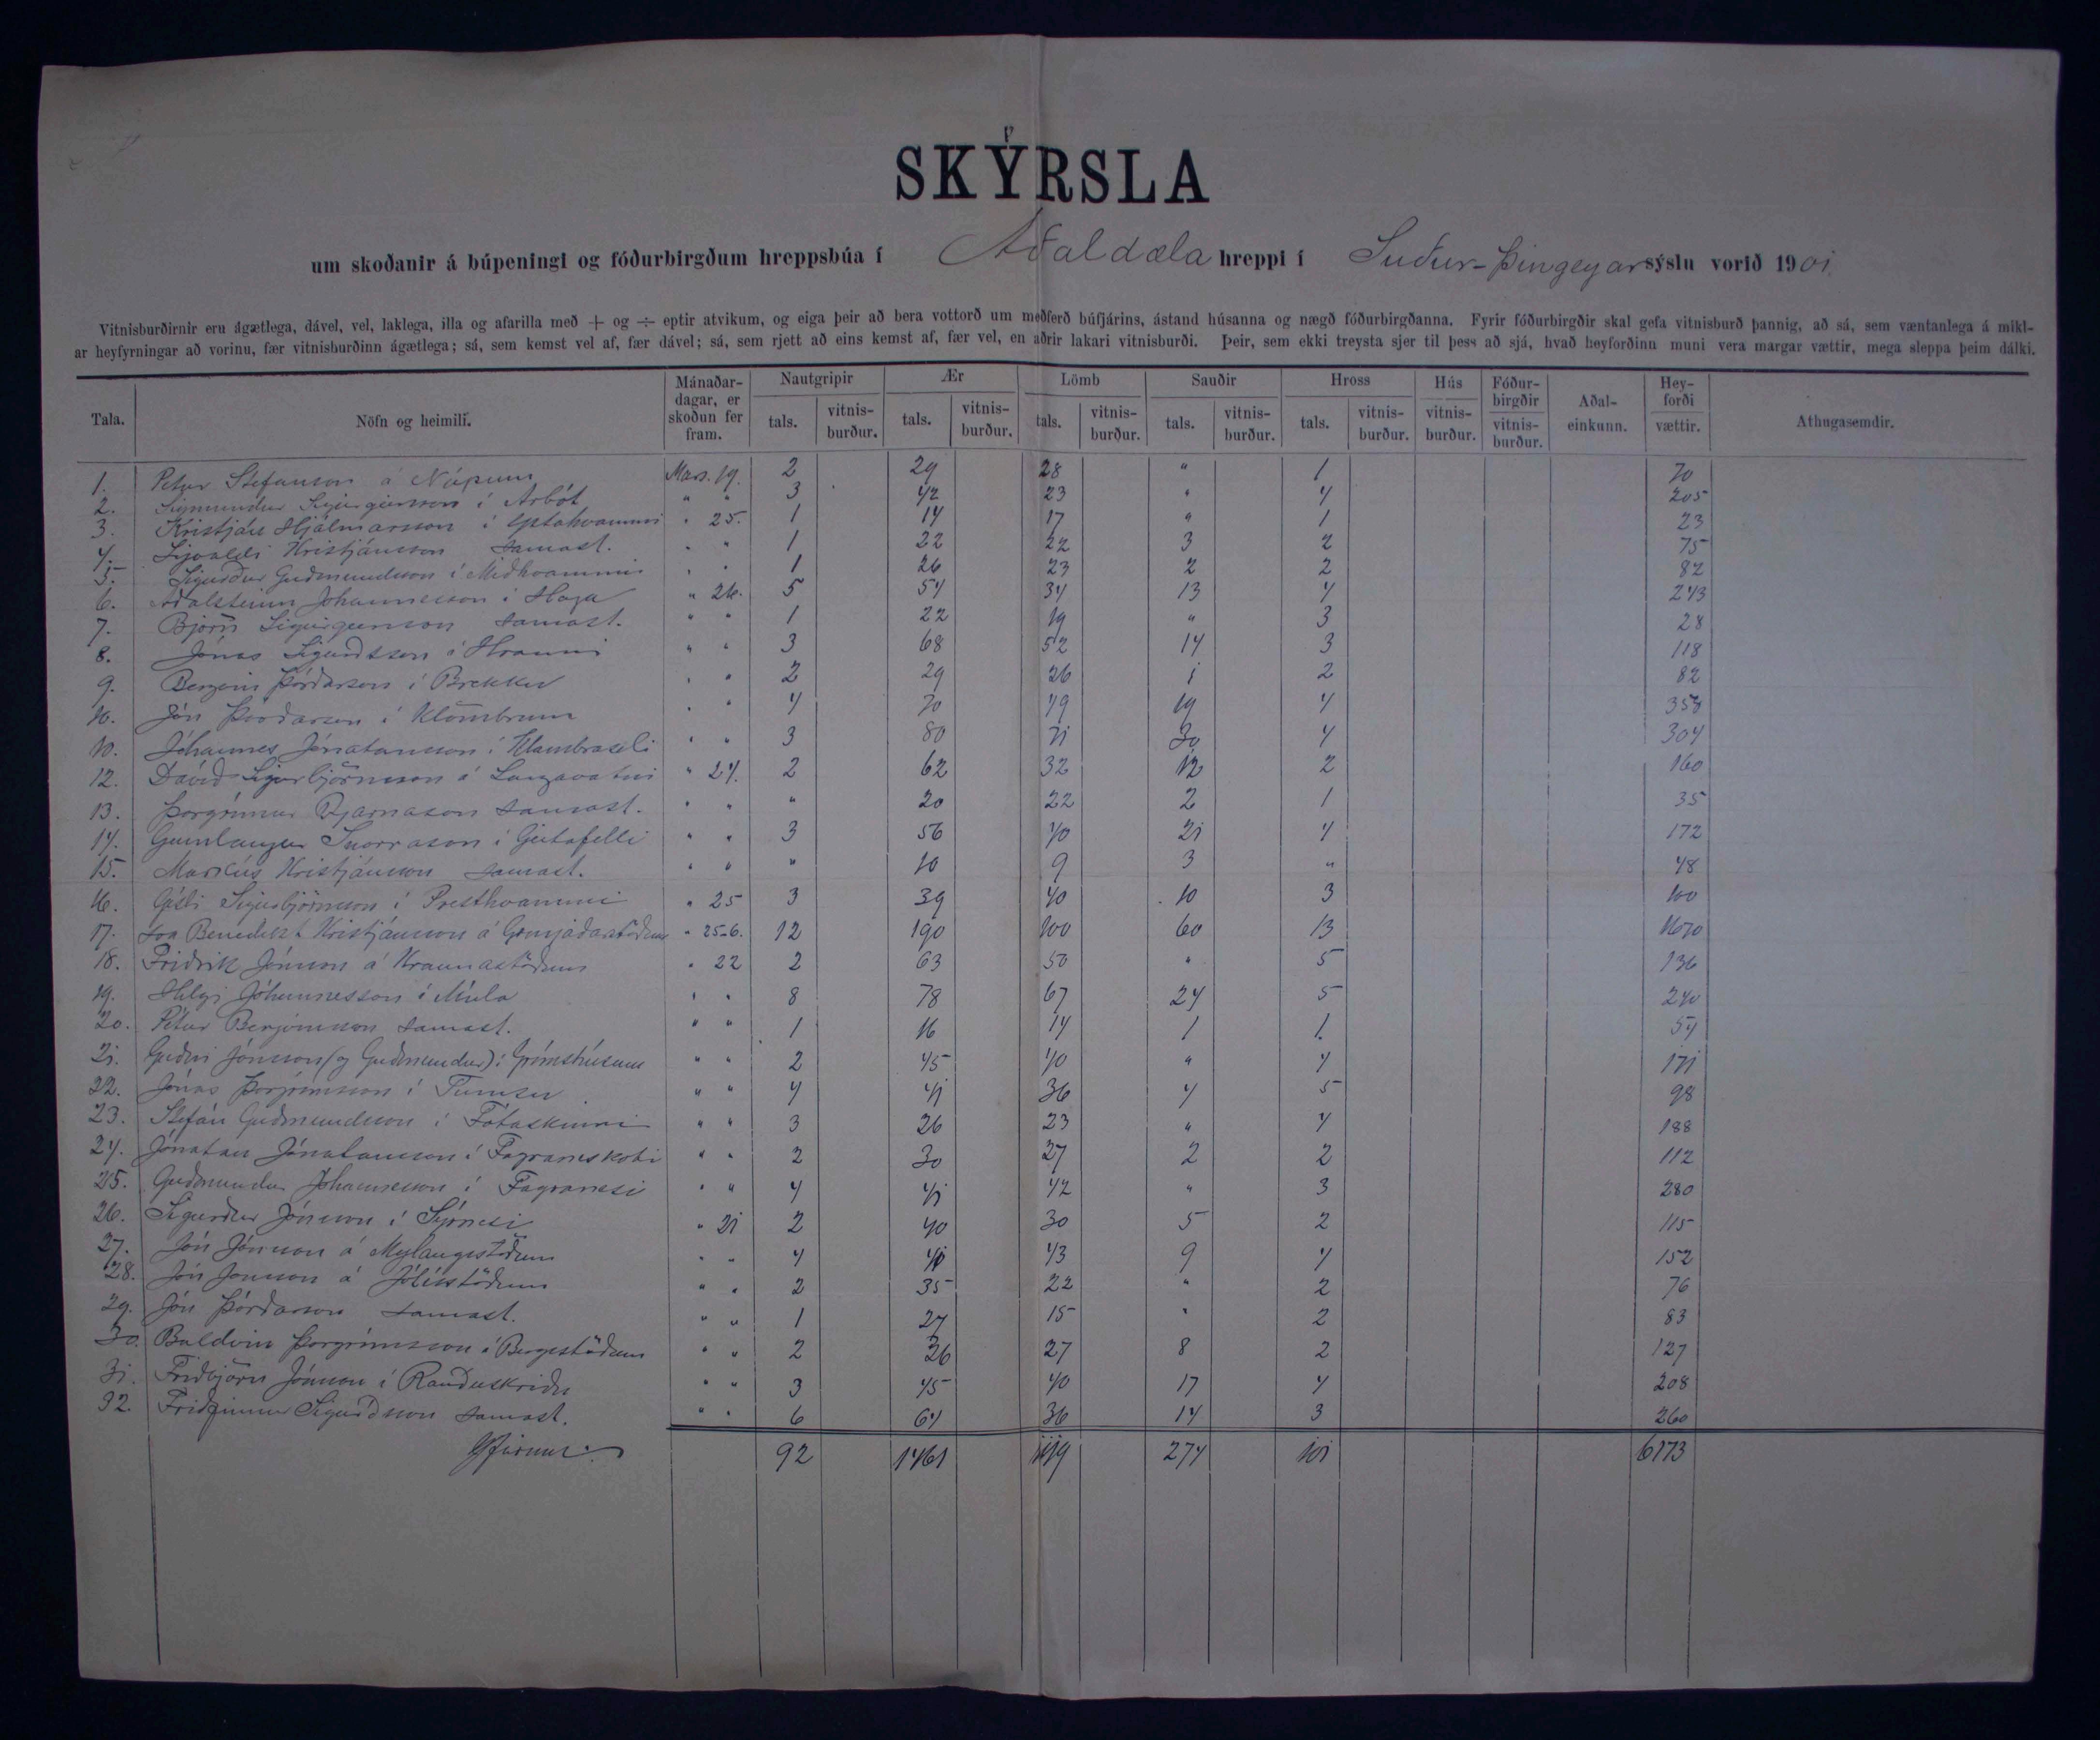 SKÝRSLA
um skoðanir á búpeningi og fóðurbirgðum hreppsbúa í Aðaldæla hreppi í Suður-Þingeyar sýslu vorið 1901
Vitnisburðirnir eru ágætlega, dável, vel, laklega, illa og afarilla með + og ÷ eptir atvikum, og eiga þeir að bera vottorð um meðferð búfjárins, ástand húsanna og nægð fóðurbirgðanna. Fyrir fóðurbirgðir skal gefa vitnisburð þannig, að sá, sem væntanlega á mikl-
ar heyfyrningar að vorinu, fær vitnisburðinn ágætlega; sá, sem kemst vel af, fær dável; sá, sem rjett að eins kemst af, fær vel, en aðrir lakari vitnisburði. Þeir, sem ekki treysta sjer til þess að sjá, hvað heyforðinn muni vera margar vættir, mega sleppa þeim dálki.
Tala. Nöfn og heimili. Mánaðar-dagar, er skoðun fer fram. Nautgripir tals. vitnis-burður. Ær tals. vitnis-burður. Lömb tals. vitnis-burður. Sauðir tals. vitnis-burður. Hross tals. vitnis-burður. Hús vitnis-burður. Fóður-birgðir vitnis-burður. Aðal-einkunn. Hey-forði vættir. Athugasemdir.
1. Petur Stefánson á Núpum Mars. 19. 2 29 28 " 1 70
2. Sigmundur Sigurgeirsson í Árbót " " 3 42 23 " 4 205
3. Kristján Hjálmarsson í Yptahvammi " 25. 1 14 17 " 1 23
4. Sigvaldi Kristjánsson samast. " " 1 22 22 3 2 75
5. Sigurður Guðmundsson í Miðhvammi " " 1 26 23 2 2 82
6. Aðalsteinn Jóhannesson í Haga " 26. 5 54 34 13 4 243
7. Björn Sigurgeirsson samast. " " 1 22 19 " 3 28
8. Jónas Sigurðsson í Hrauni " " 3 68 52 14 3 118
9. Bergvin Þórðarson í Brekku " " 2 29 26 1 2 82
10. Jón Þórðarson í Klömbrum " " 4 70 49 19 4 358
10. Jóhannes Jónatansson í Klambraseli " " 3 80 71 30 4 304
12. Davíð Sigurbjörnsson á Langavatni " 24. 2 62 32 12 2 160
13. Þorgrímur Bjarnason samast. " " " 20 22 2 1 35
14. Gunnlaugur Snorrason í Geitafelli " " 3 56 40 21 4 172
15. Markús Kristjánsson samast. " " " 10 9 3 " 48
16. Gísli Sigurbjörnsson í Presthvammi " 25 3 39 40 10 3 100
17. sra Benedikt Kristjánsson á Grenjaðarstöðum " 25-6. 12 190 100 60 13 1670
18. Friðrik Jónsson á Kraunastöðum " 22 2 63 50 " 5 136
19. Helgi Jóhannesson í Múla " " 8 78 67 24 5 240
20. Pétur Benjamínsson samast. " " 1 16 14 1 1. 54
21. Guðni Jónsson (og Guðmundur) í Grímshúsum " " 2 45 40 " 4 171
22. Jónas Þorgrímsson í Tumsu " " 4 41 36 4 5 98
23. Stefán Guðmundsson í Fótaskinni " " 3 26 23 " 4 188
24. Jónatan Jónatansson í Fagraneskoti " " 2 30 27 2 2 112
25. Guðmundur Jóhannesson í Fagranesi " " 4 41 42 " 3 280
26. Sigurður Jónsson í Sýrnesi " 21 2 40 30 5 2 115
27. Jón Jónsson á Mýlaugsstöðum " " 4 41 43 9 4 152
28. Jón Jonsson á Jódísstöðum " " 2 35 22 " 2 76
29. Jón Þórðarson samast. " " 1 27 15 " 2 83
30. Baldvin Þorgrímsson á Bergsstöðum " " 2 36 27 8 2 127
31. Friðbjörn Jónsson í Rauðuskriðu " " 3 45 40 17 4 208
32. Friðfinnur Sigurðsson samast. " " 6 64 36 14 3 260
92 1461 1119 274 101 6173